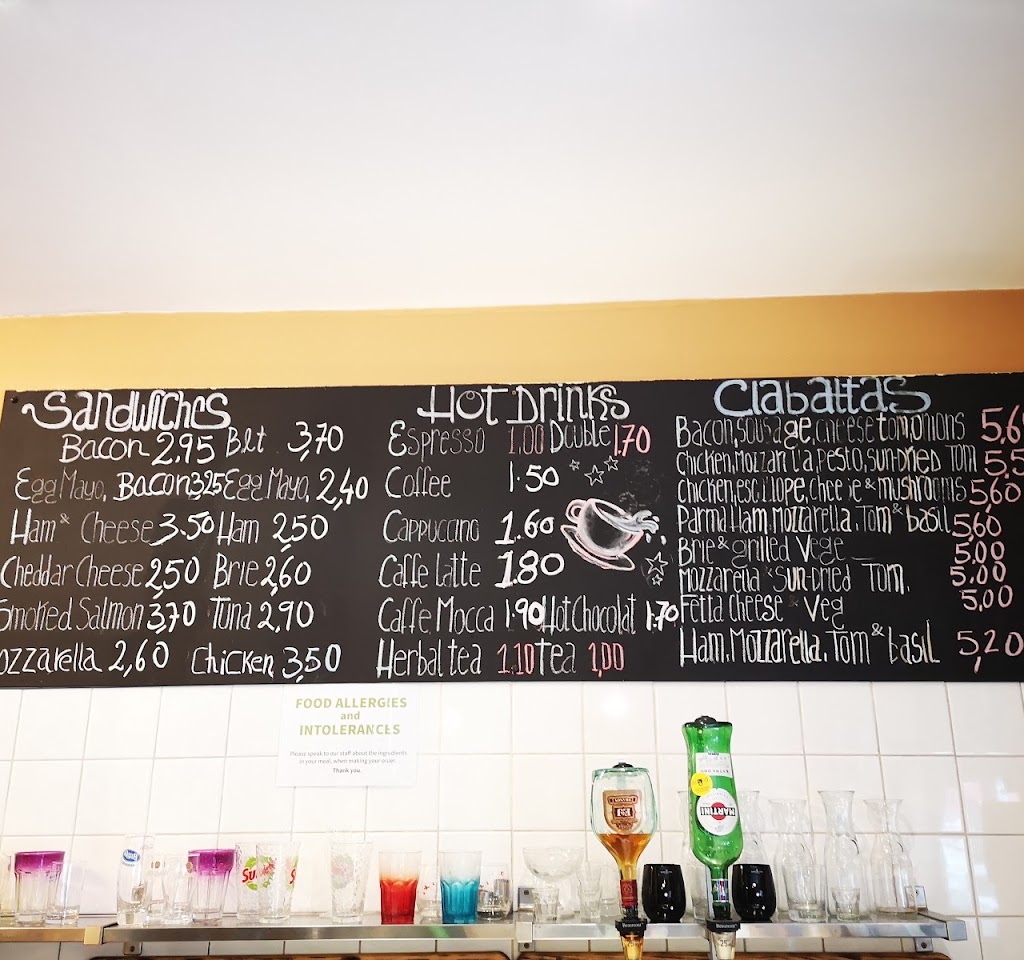 Sandwiches
Bacon 2,95 B.l.t 3,70
Egg Mayo, Bacon 3,25 Egg Mayo, 2,40
Ham & Cheese 3.50 Ham 2,50
Cheddar Cheese 2,50 Brie 2,60
Smoked Salmon 3,70 Tuna 2,90
ozzarella 2,60 Chicken 3,50
Hot Drinks
Espresso 1.00 Double 1.70
Coffee 1.50
Cappuccino 1.60
Caffe latte 1.80
Caffe Mocca 1.90 Hot Chocolat 1.70
Herbal tea 1.10 Tea 1,00
Ciabattas
Bacon, sousage, cheese tom, onions 5,6
Chicken, Mozzarilla, Pesto, sun-Dried Tom 5,5
Chicken, escilope, cheese & mushrooms 5,60
Parma Ham, Mozzarella, Tom & basil 5,60
Brie & grilled Vege 5,00
Mozzarella & Sun-Dried Tom, 5,00
Fetta cheese & Veg 5,00
Ham, Mozzarella, Tom & basil 5,20
FOOD ALLERGIES
and
INTOLERANCES
Please speak to our staff about the ingredients
in your meal, when making your order.
Thank you.
MARTINI
E&J
25